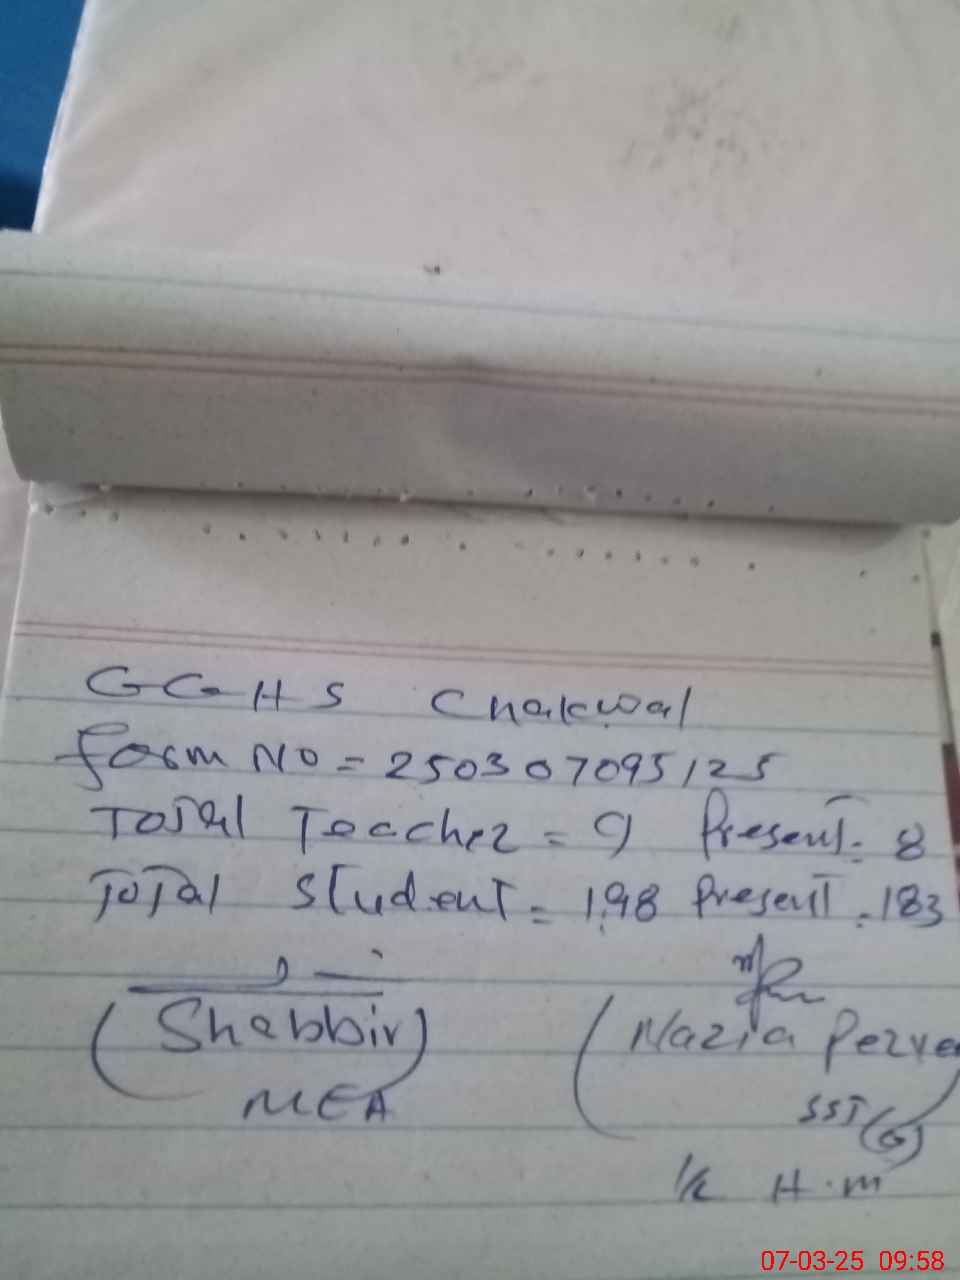 GGHS Chakwal
form No = 250307095125
Total Teacher = 9 Present = 8
Total Student = 198 Present = 183
(Shabbir)
MEA
(Nazia Perve
SST(G)
I/C H.M
07-03-25 09:58